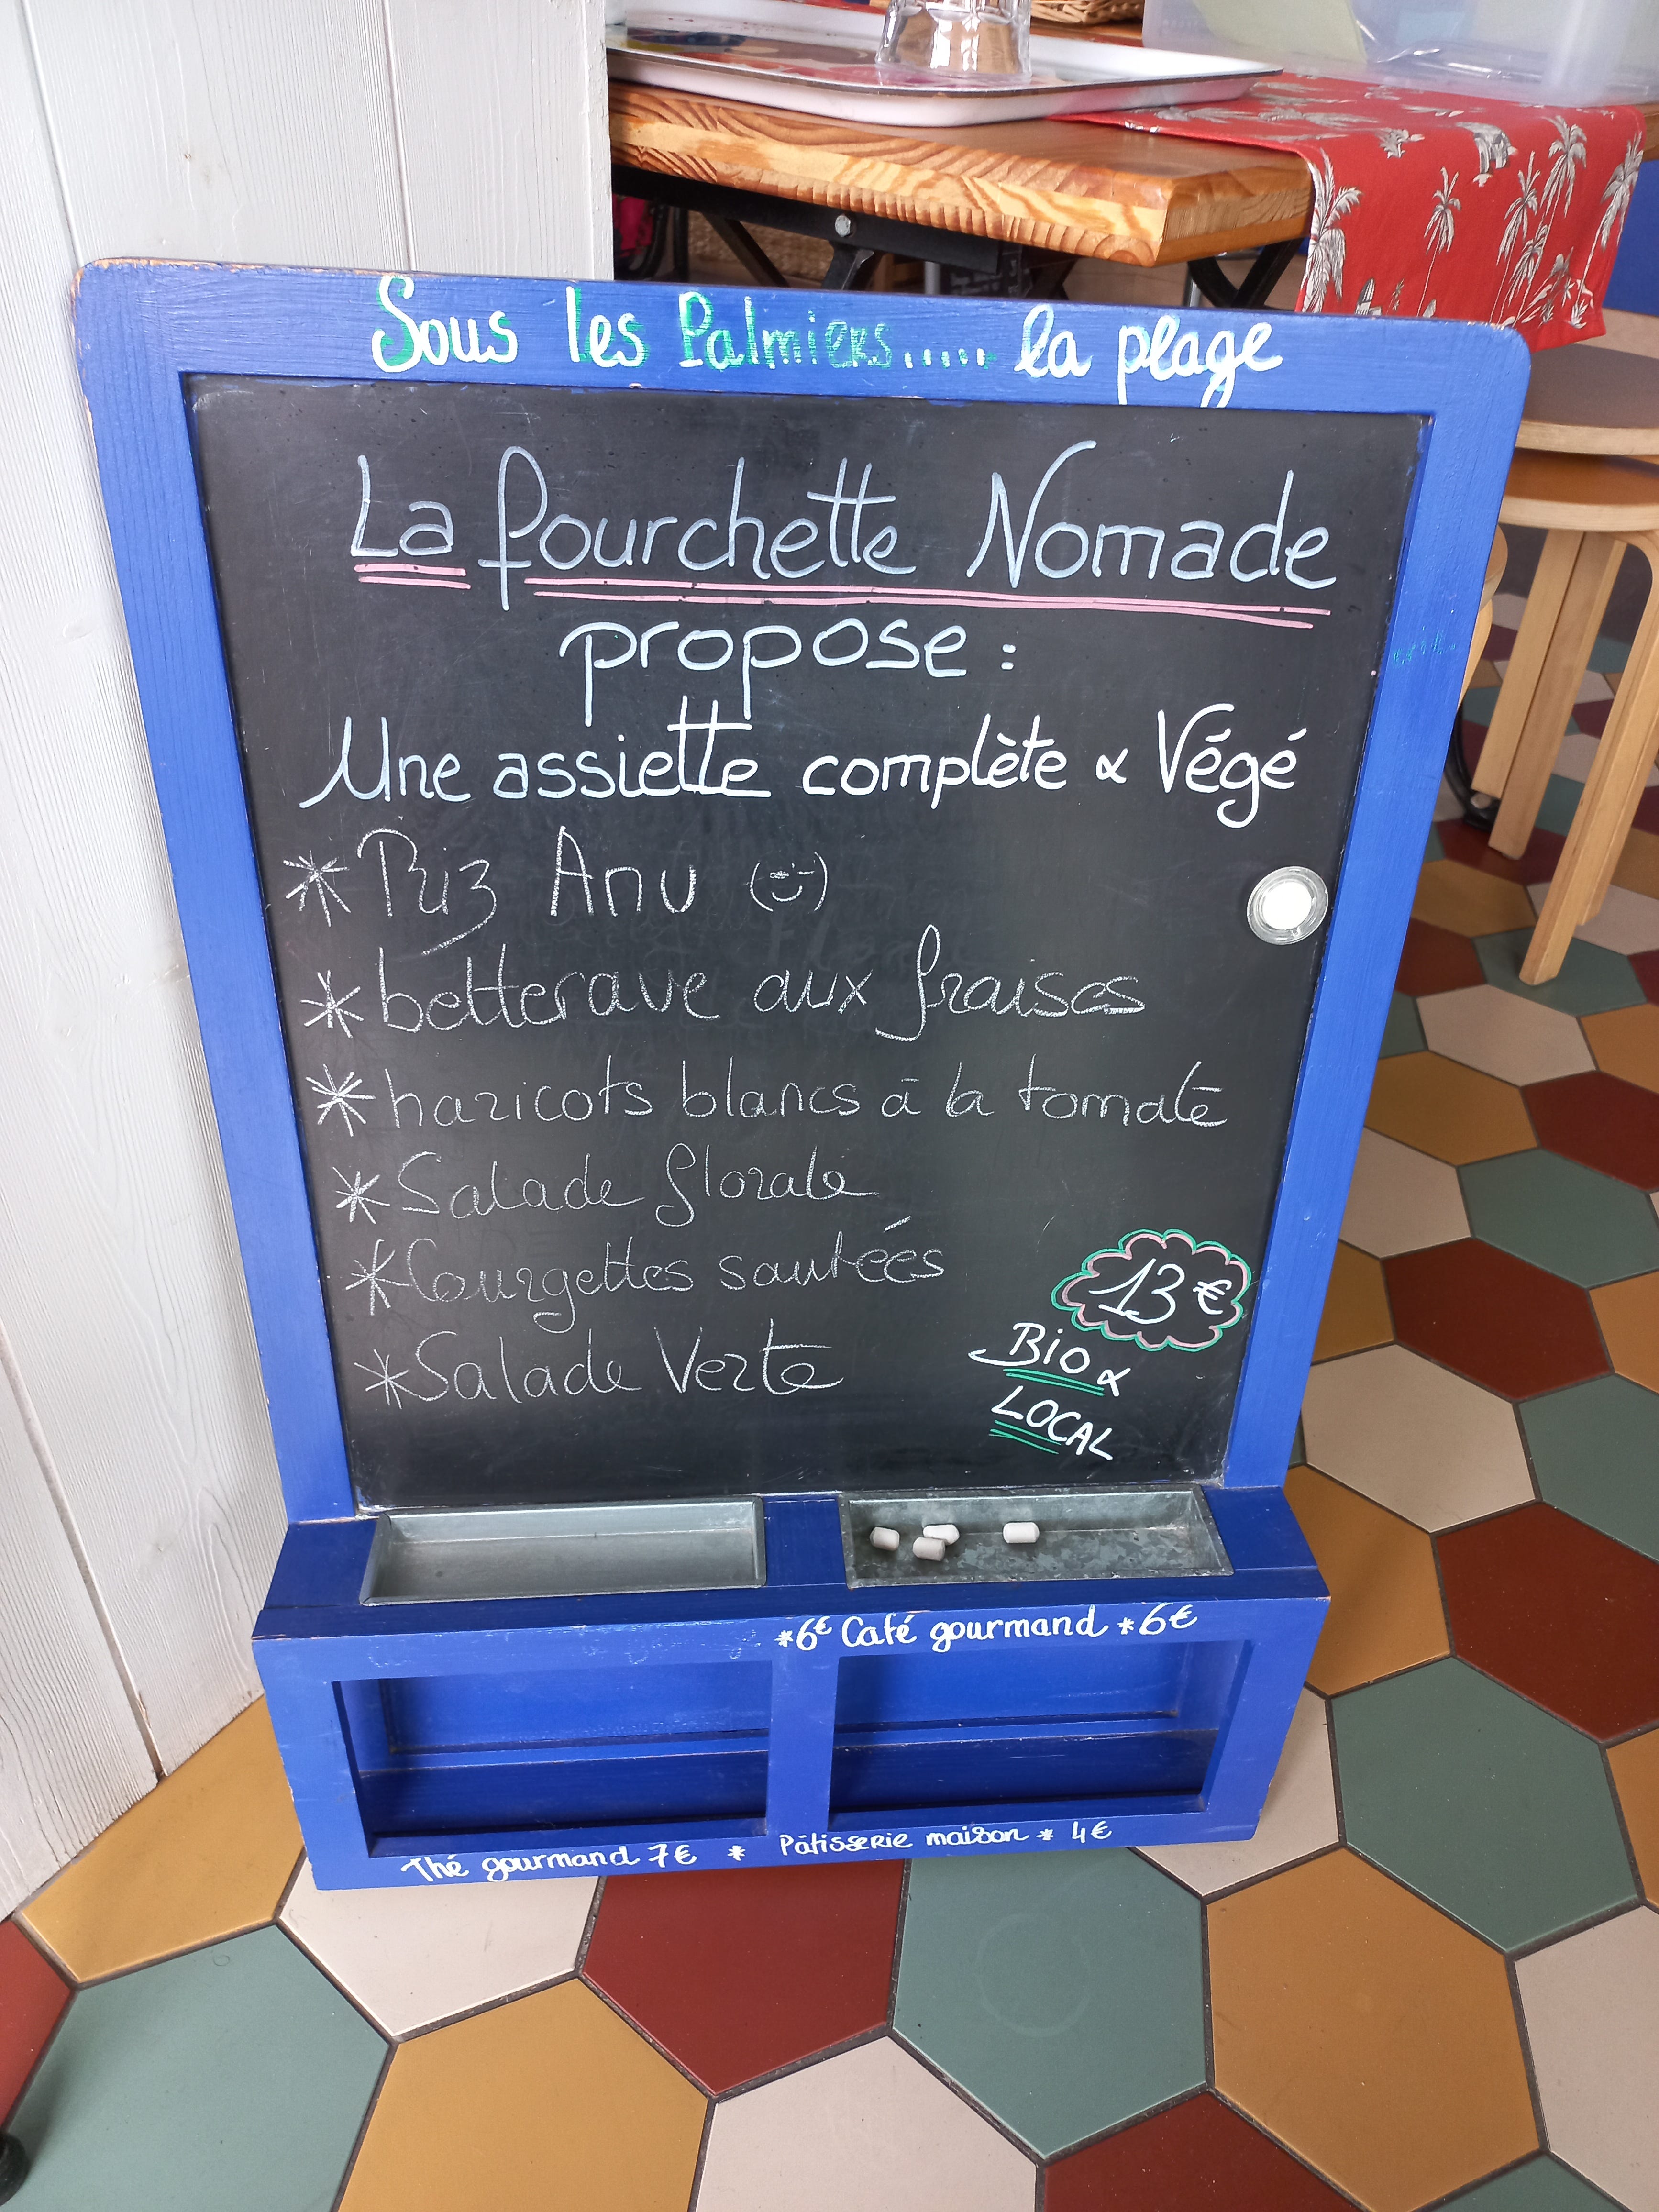 Sous les Palmiers..... la plage
La fourchette Nomade
propose :
Une assiette complète & Végé
* Riz Anu (😊)
* betterave aux fraises
* haricots blancs à la tomate
* Salade florale
* Courgettes sautées
* Salade Verte
13€
BiO &
LOCAL
*6€ Café gourmand *6€
Thé gourmand 7€ * Pâtisserie maison * 4€